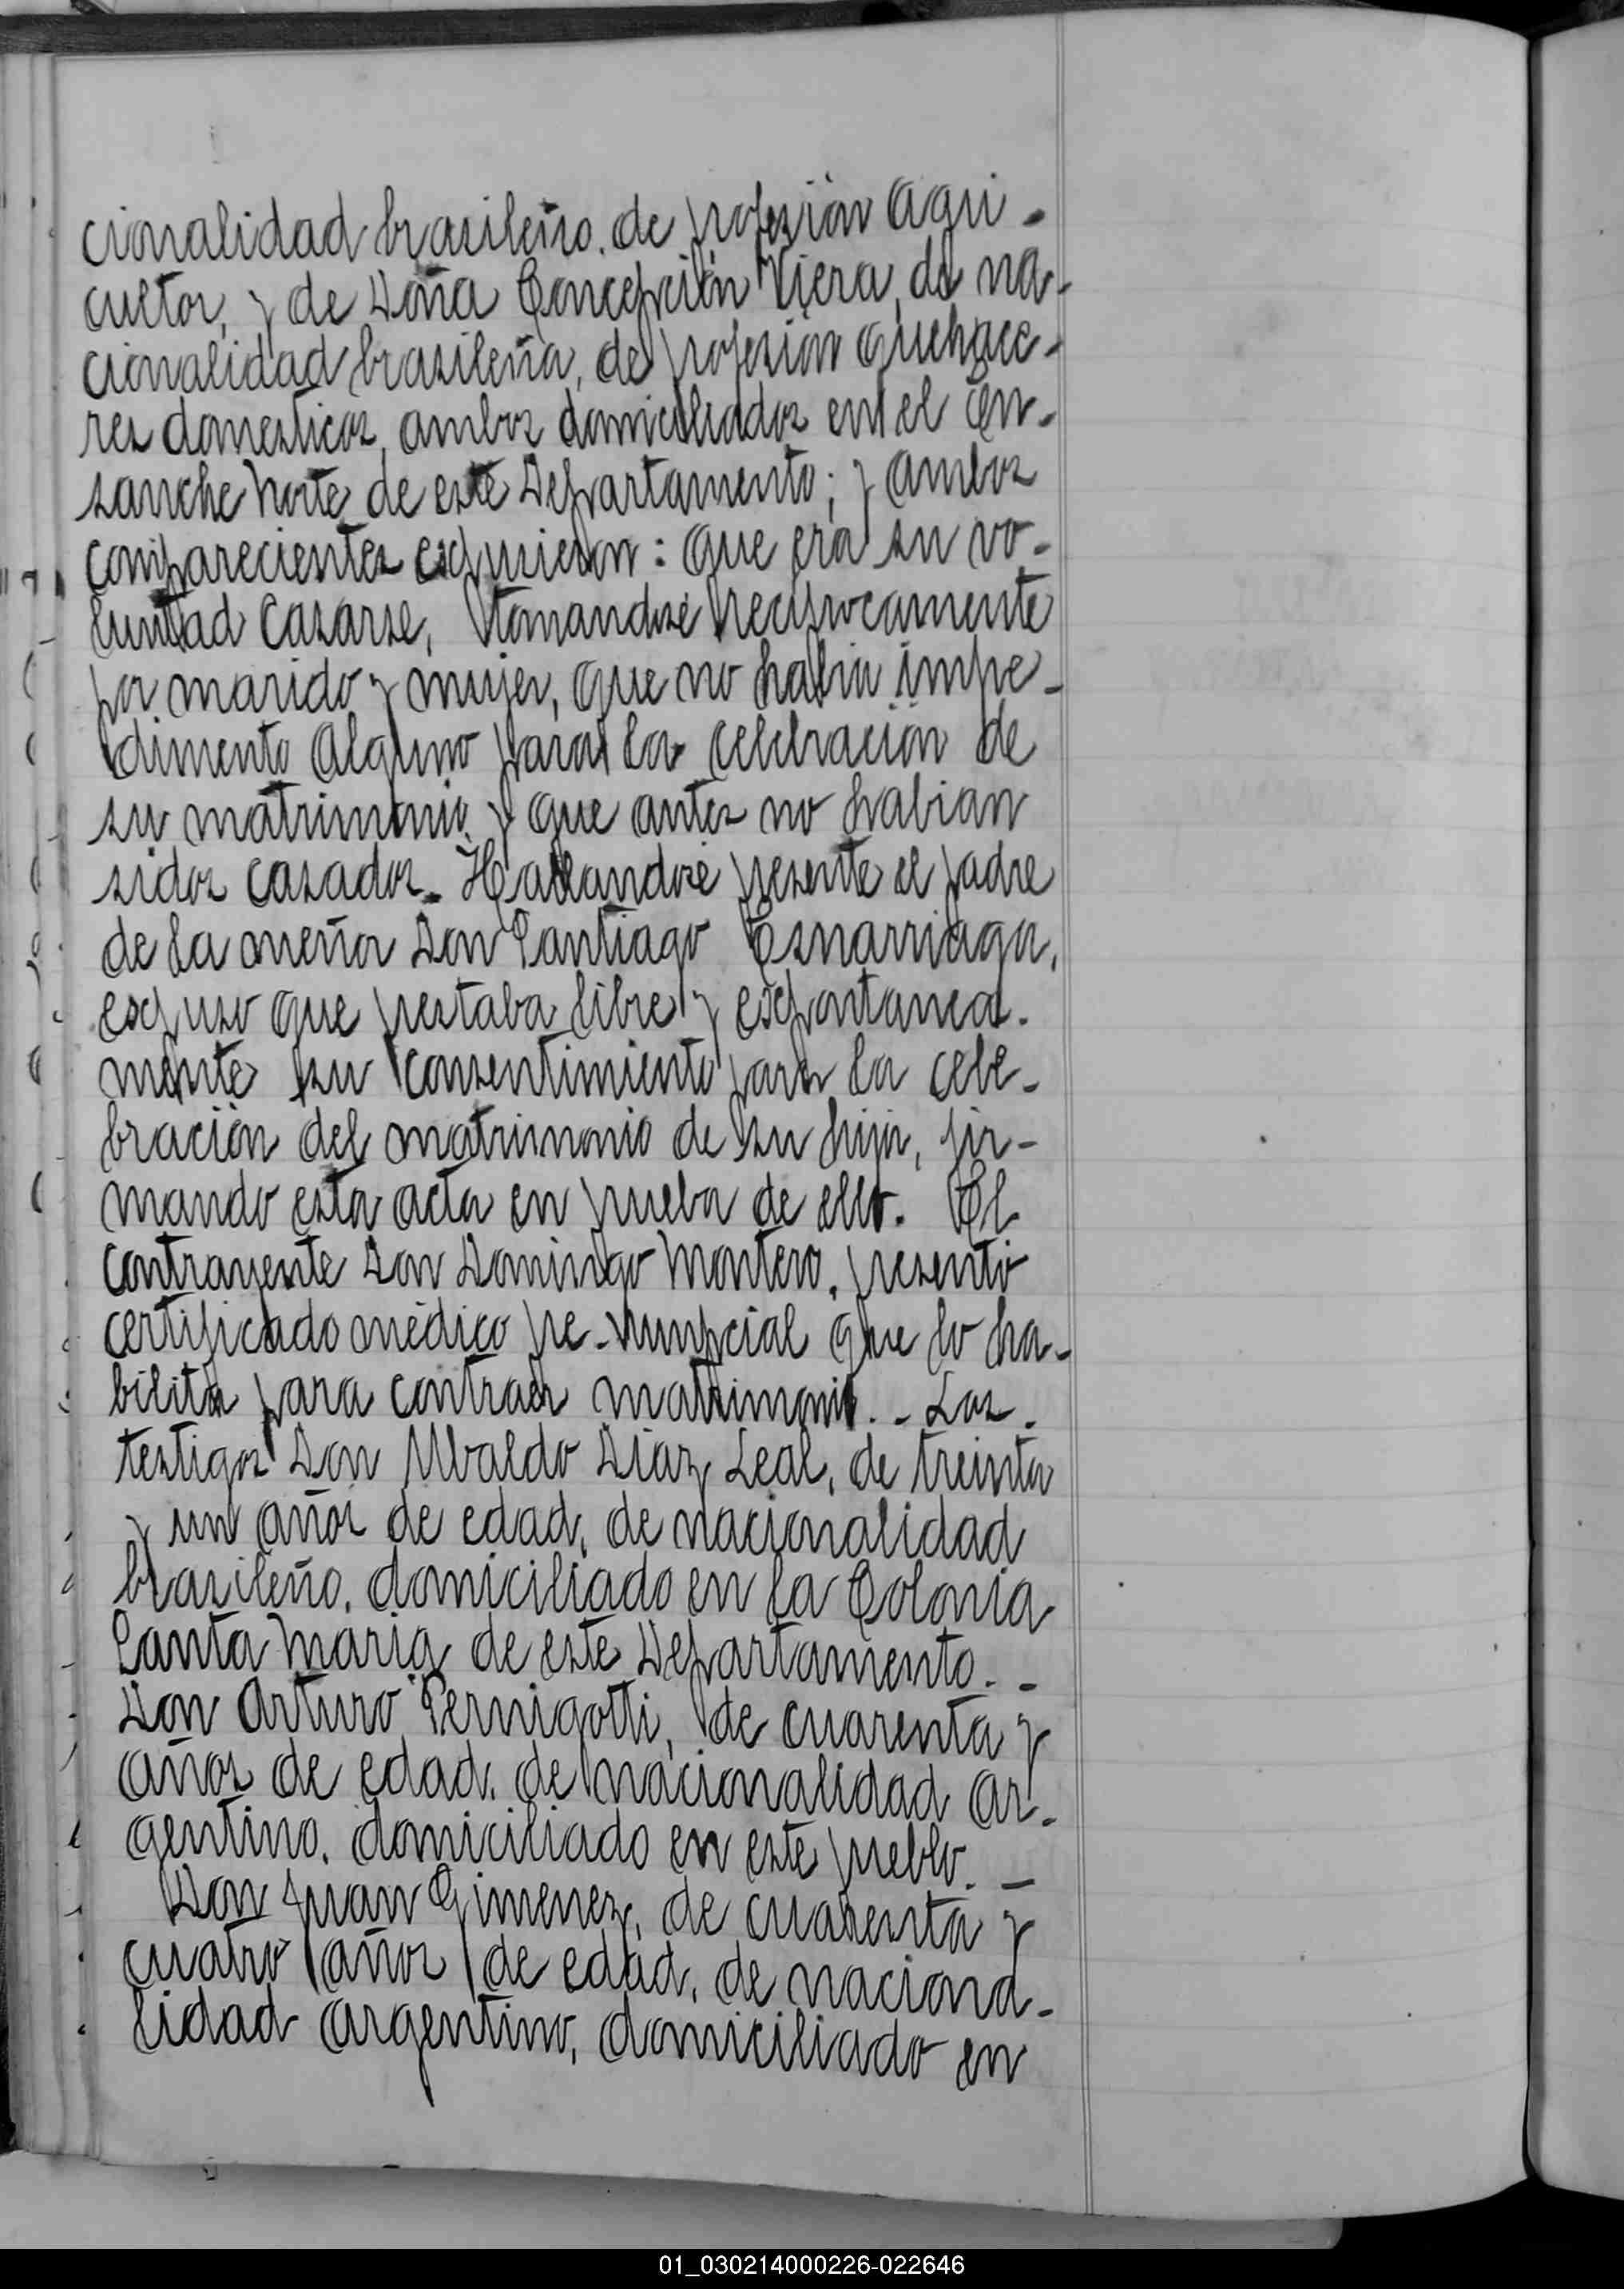 cionalidad brasileño. de profesión agri-
cultor, y de Doña Concepción Viera, de na-
cionalidad brasileña, de profesión quehace-
res domesticos, ambos domiciliados en el en-
sanche Norte de este Departamento; y ambos
comparecientes expusieron: que era su vo-
luntad casarse, tomandose reciprocamente
por marido y mujer, que no habia impe-
dimento alguno para la celebración de
su matrimonio y que antes no habian
sidos casados. Hallandose presente el padre
de la menor Don Santiago Esnarriaga,
expuso que prestaba libre y espontanea-
mente su consentimiento para la cele-
bración del matrimonio de su hija, fir-
mando esta acta en prueba de ello. El
contrayente Don Domingo Montero, presentó
certificado médico pre-nupcial que lo ha-
bilita para contraer matrimonio. - Los
testigos Don Ubaldo Diaz Leal, de treinta
y un años de edad, de nacionalidad
brasileño, domiciliado en la Colonia
Santa Maria de este Departamento. -
Don Arturo Pernigotti, de cuarenta y
años de edad, de nacionalidad ar-
gentino, domiciliado en este pueblo. -
Don Juan Gimenez, de cuarenta y
cuatro años de edad, de naciona-
lidad argentino, domiciliado en
01_030214000226-022646